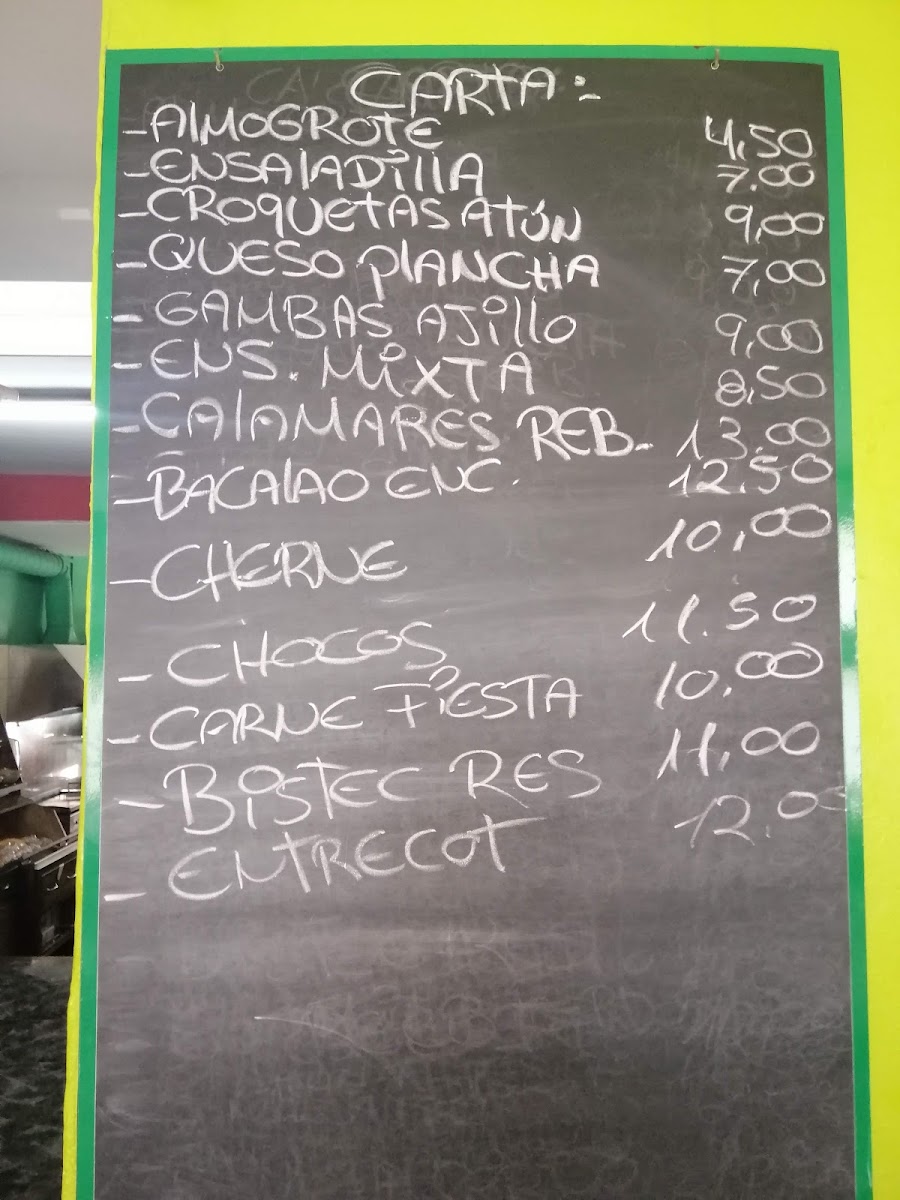 CARTA:-
-AlMOGROTE 4,50
-ENSAlADillA 7.00
-CROQUETAS ATÚN 9,00
-QUESO PlANCHA 7,00
-GAMBAS AJillO 9,00
-ENS. MiXTA 8,50
-CAlAMARES REB- 13.00
-BACAlAO ENC. 12.50
-CHERNE 10,00
-CHOCOS 11.50
-CARNE FiESTA 10.00
-BiSTEC RES 11,00
-ENTRECOT 12.00